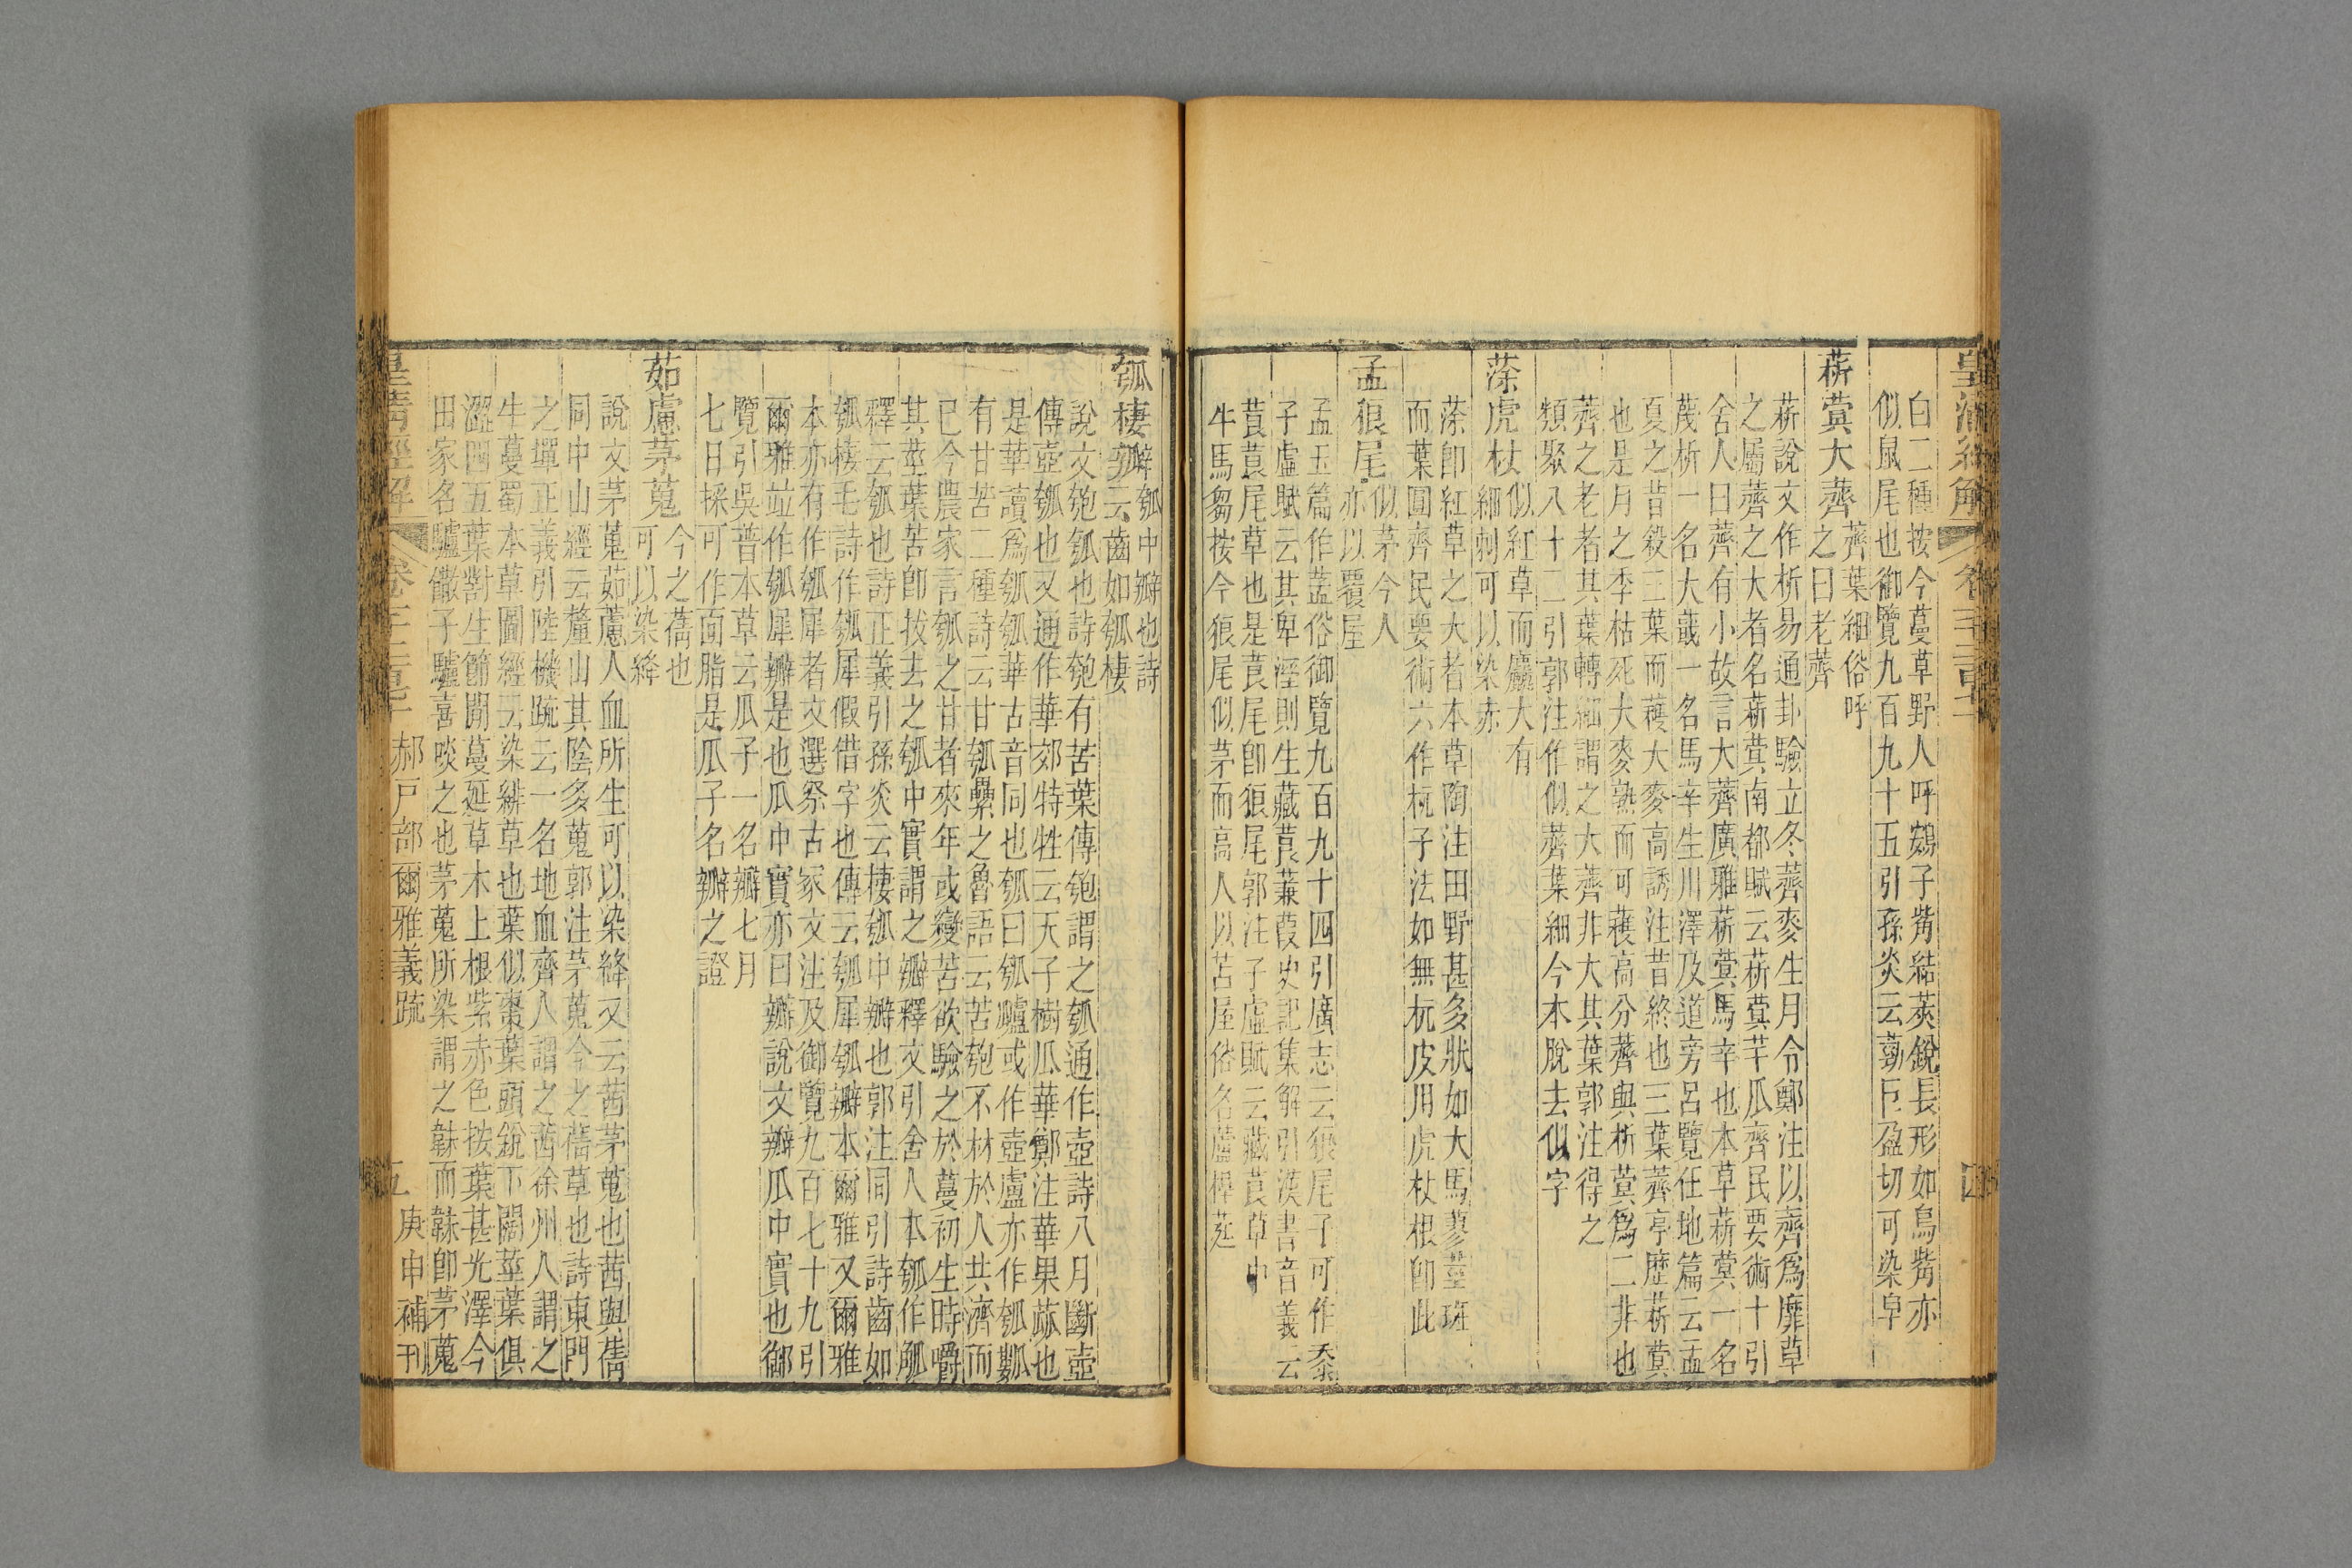 白二種按今蔓草野人呼鵶子觜結莢銳長形如鳥觜亦
似鼠尾也御覽九百九十五引孫炎云葝巨盈切可染皁
菥蓂大薺
薺葉細俗呼
之曰老薺
菥說文作析易通卦驗立冬薺麥生月令鄭注以薺爲靡草
之屬薺之大者名菥蓂南都賦云菥蓂芋瓜齊民要術十引
舍人曰薺有小故言大薺廣雅菥蓂馬辛也本草菥蓂一名
蔑析一名大蕺一名馬辛生川澤及道旁呂覽任地篇云孟
夏之昔殺三葉而穫大麥高誘注昔終也三葉薺亭歷菥蓂
也是月之季枯死大麥熟而可穫高分薺與析蓂爲二非也
薺之老者其葉轉細謂之大薺非大其葉郭注得之
類聚八十二引郭注作似薺葉細今本脫去似字
蒤虎杖
似紅草而麤大有
細刺可以染赤
蒤卽紅草之大者本草陶注田野甚多狀如大馬蓼莖斑
而葉圓齊民要術六作杬子法如無杬皮用虎杖根卽此
孟狼尾
似茅今人
亦以覆屋
孟玉篇作䓝俗御覽九百九十四引廣志云狼尾子可作黍
子虛賦云其卑溼則生藏莨蒹葭史記集解引漢書音義云
莨莨尾草也是莨尾卽狼尾郭注子虛賦云藏莨草中
牛馬芻按今狼尾似茅而高人以苫屋俗名蘆稈莛
瓠棲瓣
瓠中瓣也詩
云齒如瓠棲
說文匏瓠也詩匏有苦葉傳匏謂之瓠通作壺詩八月斷壺
傳壺瓠也又通作華郊特牲云天子樹瓜華鄭注華果蓏也
是華讀爲瓠瓠華古音同也瓠曰瓠㼖或作壺盧亦作瓠㼖
有甘苦二種詩云甘瓠纍之魯語云苦匏不材於人共濟而
已今農家言瓠之甘者來年或變苦欲驗之於蔓初生時嚼
其莖葉苦卽拔去之瓠中實謂之瓣釋文引舍人本瓠作觚
釋云瓠也詩正義引孫炎云棲瓠中瓣也郭注同引詩齒如
瓠棲毛詩作瓠犀假借字也傳云瓠犀瓠瓣本爾雅又爾雅
本亦有作瓠犀者文選祭古冢文注及御覽九百七十九引
爾雅竝作瓠犀瓣是也瓜中實亦曰瓣說文瓣瓜中實也御
覽引吳普本草云瓜子一名瓣七月
七日採可作面脂是瓜子名瓣之證
茹藘茅蒐
今之蒨也
可以染絳
說文茅蒐茹藘人血所生可以染絳又云茜茅蒐也茜與蒨
同中山經云釐山其陰多蒐郭注茅蒐今之蒨草也詩東門
之墠正義引陸機疏云一名地血齊人謂之茜徐州人謂之
牛蔓蜀本草圖經云染緋草也葉似棗葉頭銳下闊莖葉俱
澀四五葉對生節閒蔓延草木上根紫赤色按葉甚光澤今
田家名驢饊子驢喜啖之也茅蒐所染謂之韎而韎卽茅蒐
皇清經解
郝戶部爾雅義疏
五
庚申補刊